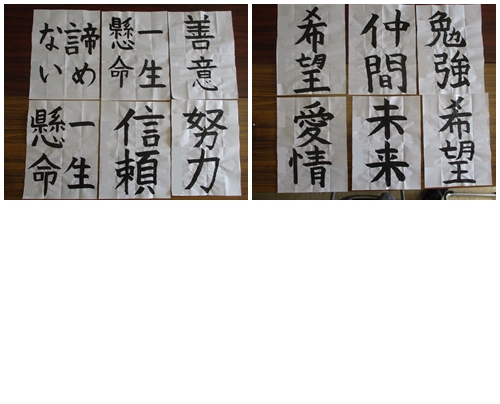 善意
一生
懸命
諦め
ない
努力
信頼
一生
懸命
勉強
仲間
希望
希望
未来
愛情